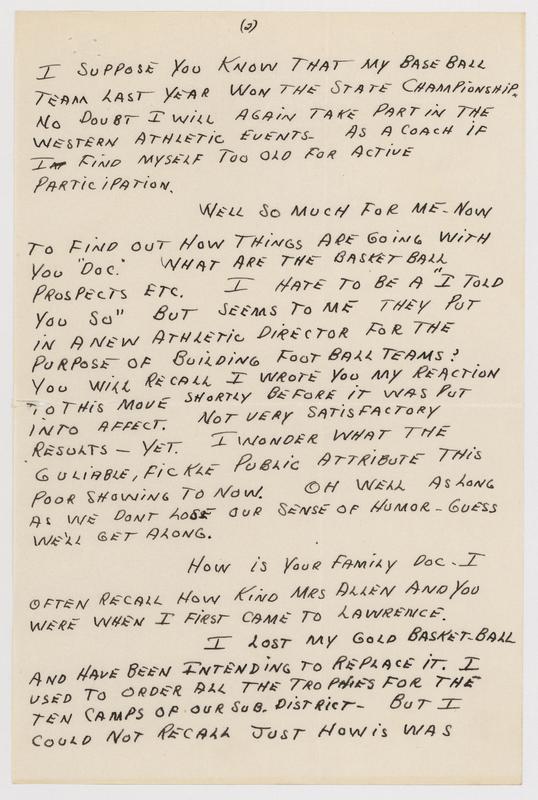 (2)
I SUPPOSE YOU KNOW THAT MY BASE BALL
TEAM LAST YEAR WON THE STATE CHAMPIONSHIP.
NO DOUBT I WILL AGAIN TAKE PART IN THE
WESTERN ATHLETIC EVENTS- AS A COACH IF
I FIND MYSELF TOO OLD FOR ACTIVE
PARTICIPATION.
WELL SO MUCH FOR ME-NOW
TO FIND OUT HOW THINGS ARE GOING WITH
YOU "DOC." WHAT ARE THE BASKET BALL
PROSPECTS ETC. I HATE TO BE A "I TOLD
YOU SO" BUT SEEMS TO ME THEY PUT
IN A NEW ATHLETIC DIRECTOR FOR THE
PURPOSE OF BUILDING FOOT BALL TEAMS?
YOU WILL RECALL I WROTE YOU MY REACTION
TO THIS MOVE SHORTLY BEFORE IT WAS PUT
INTO AFFECT. NOT VERY SATISFACTORY
RESULTS - YET. I WONDER WHAT THE
GULIABLE, FICKLE PUBLIC ATTRIBUTE THIS
POOR SHOWING TO NOW. OH WELL AS LONG
AS WE DONT LOSE OUR SENSE OF HUMOR - GUESS
WE'LL GET ALONG.
HOW IS YOUR FAMILY DOC - I
OFTEN RECALL HOW KIND MRS ALLEN AND YOU
WERE WHEN I FIRST CAME TO LAWRENCE.
I LOST MY GOLD BASKET-BALL
AND HAVE BEEN INTENDING TO REPLACE IT. I
USED TO ORDER ALL THE TROPHIES FOR THE
TEN CAMPS OF OUR SUB-DISTRICT- BUT I
COULD NOT RECALL JUST HOW IS WAS